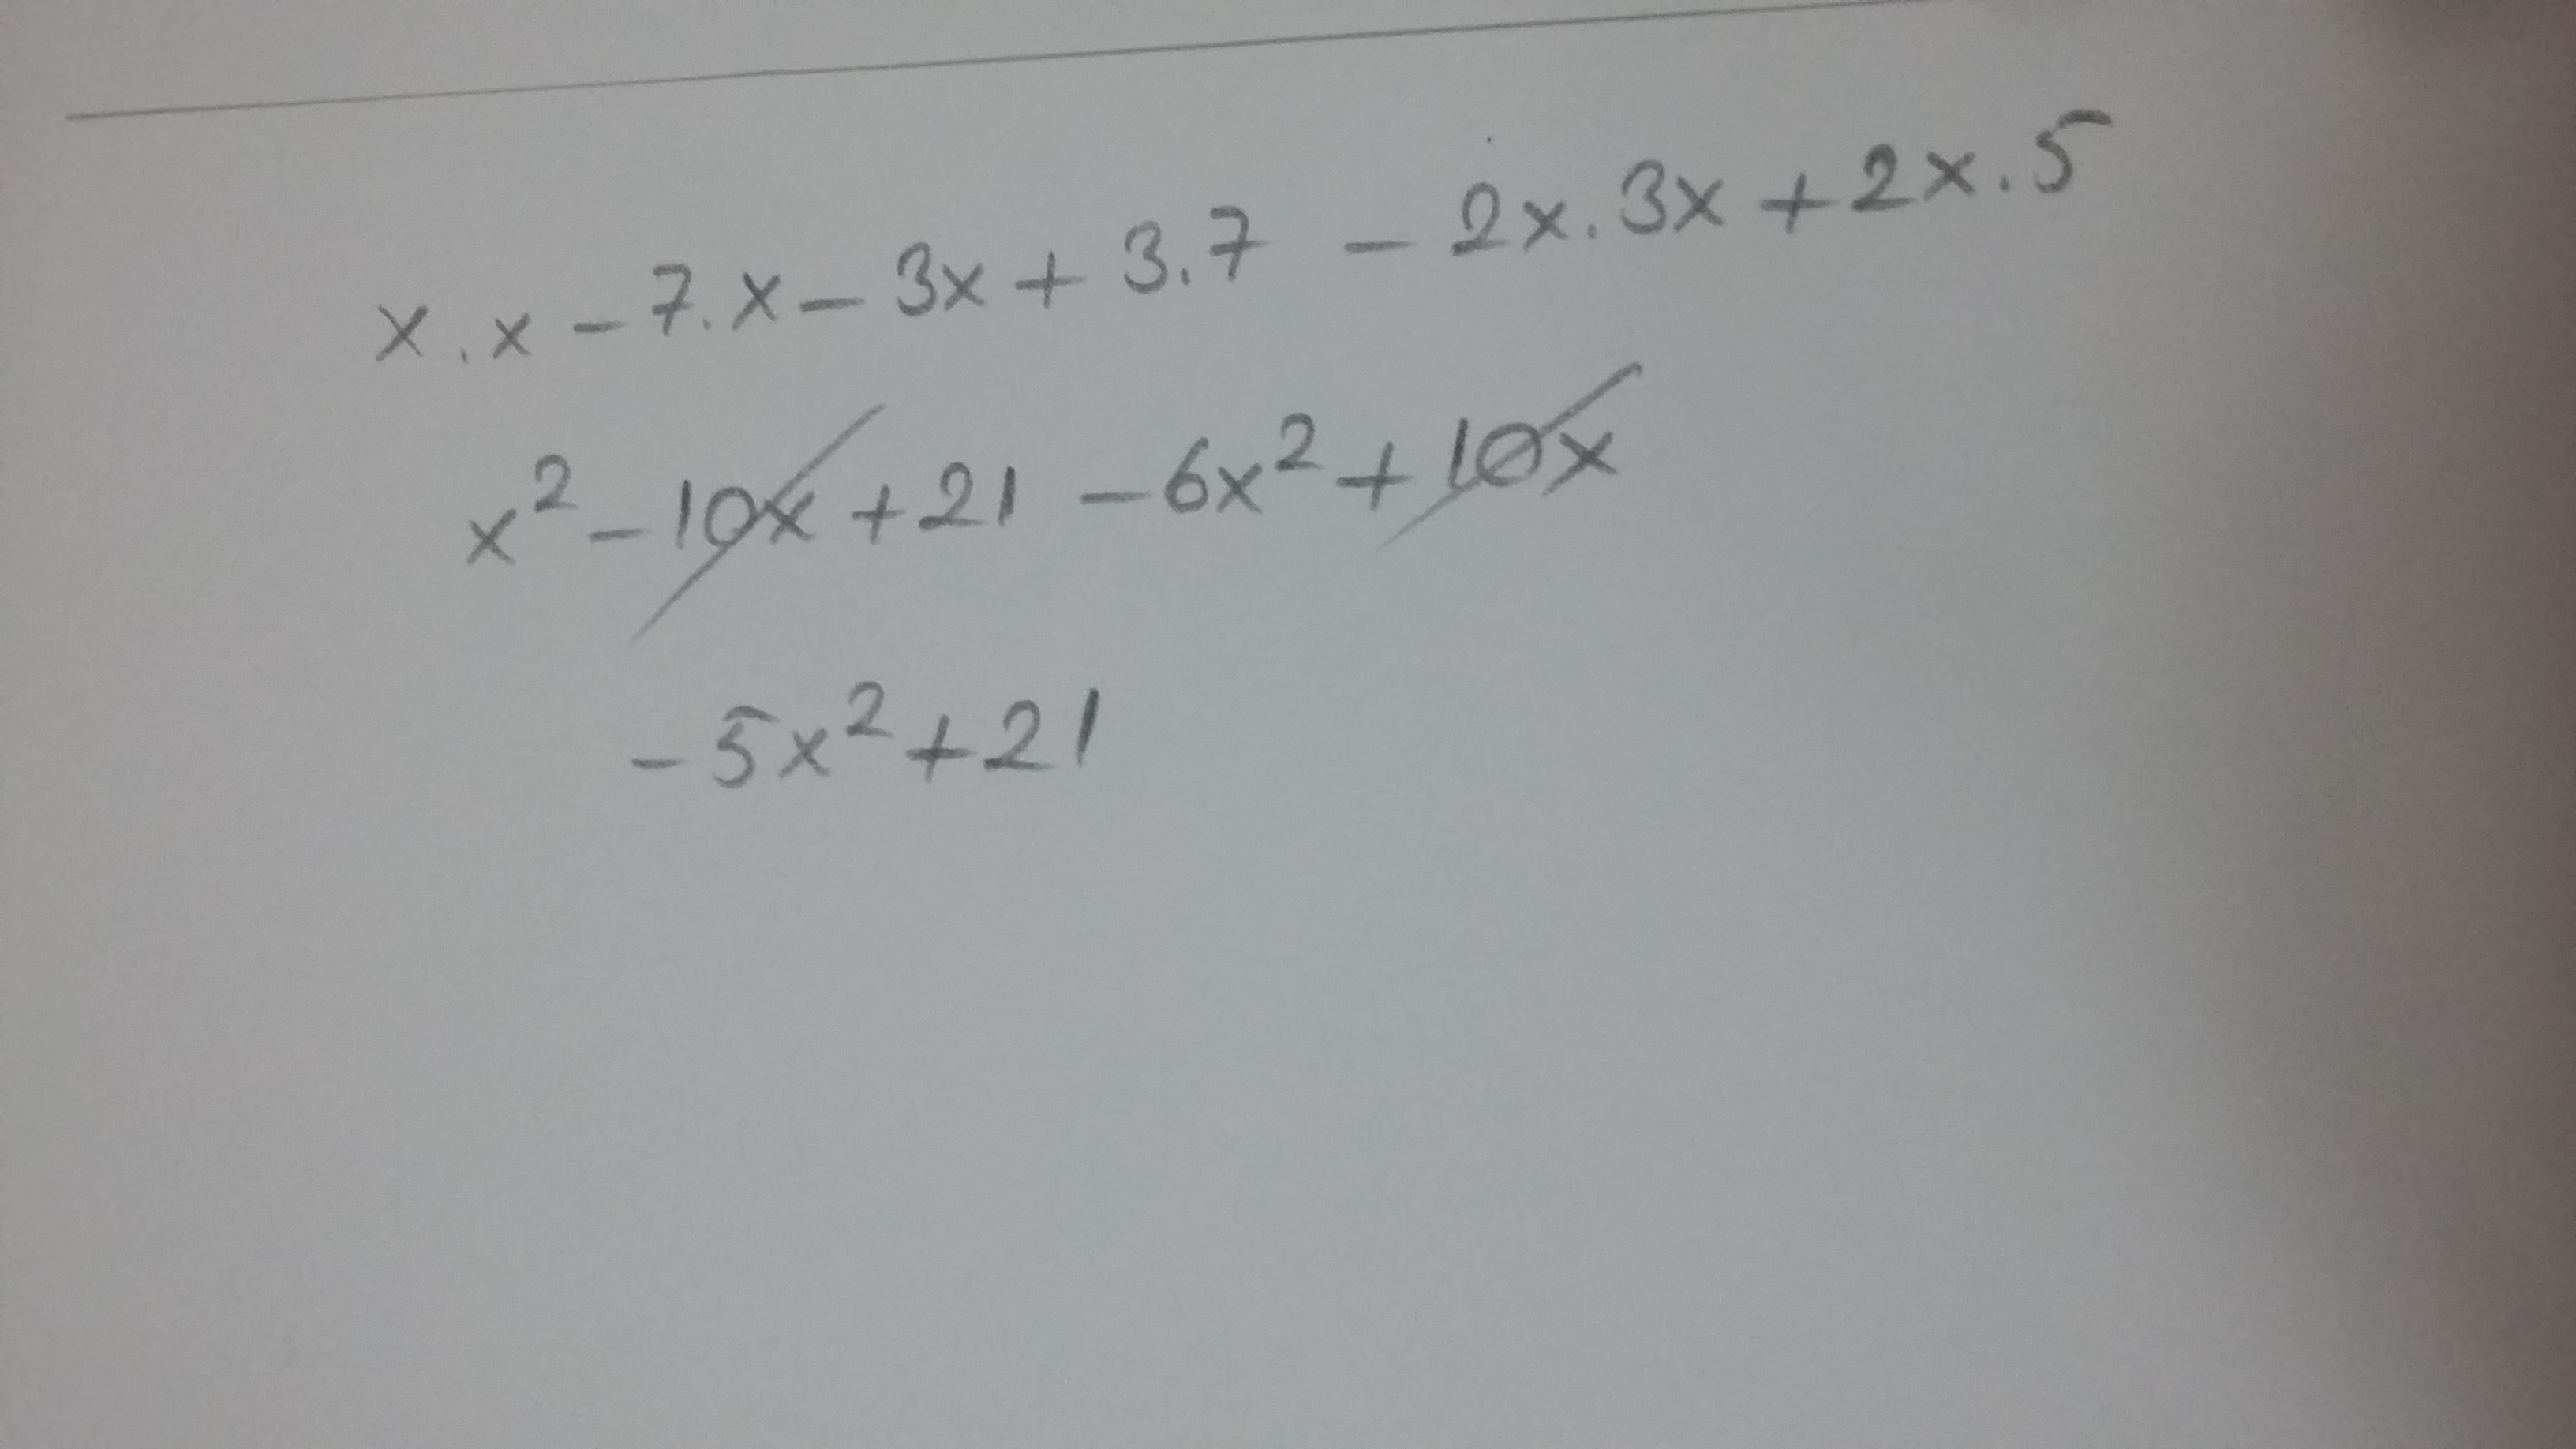 x.x - 7.x - 3x + 3.7 - 2x.3x + 2x.5
x² - 10x + 21 - 6x² + 10x
- 5x² + 21